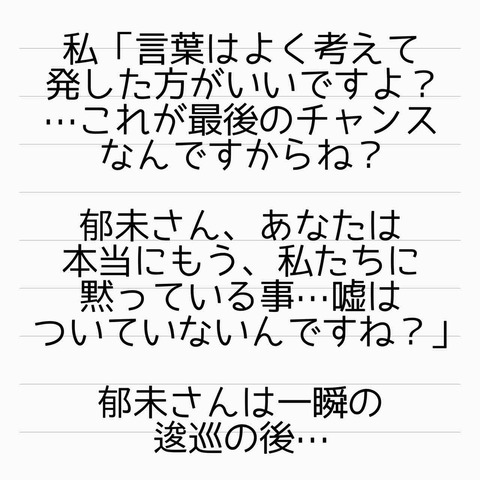 私「言葉はよく考えて
発した方がいいですよ？
…これが最後のチャンス
なんですからね？
郁未さん、あなたは
本当にもう、私たちに
黙っている事…嘘は
ついていないんですね？」
郁未さんは一瞬の
逡巡の後…